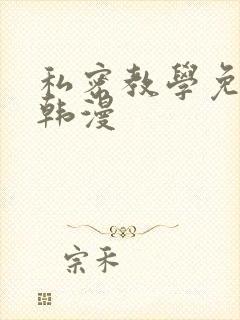 私密教學免
韩漫
宗禾